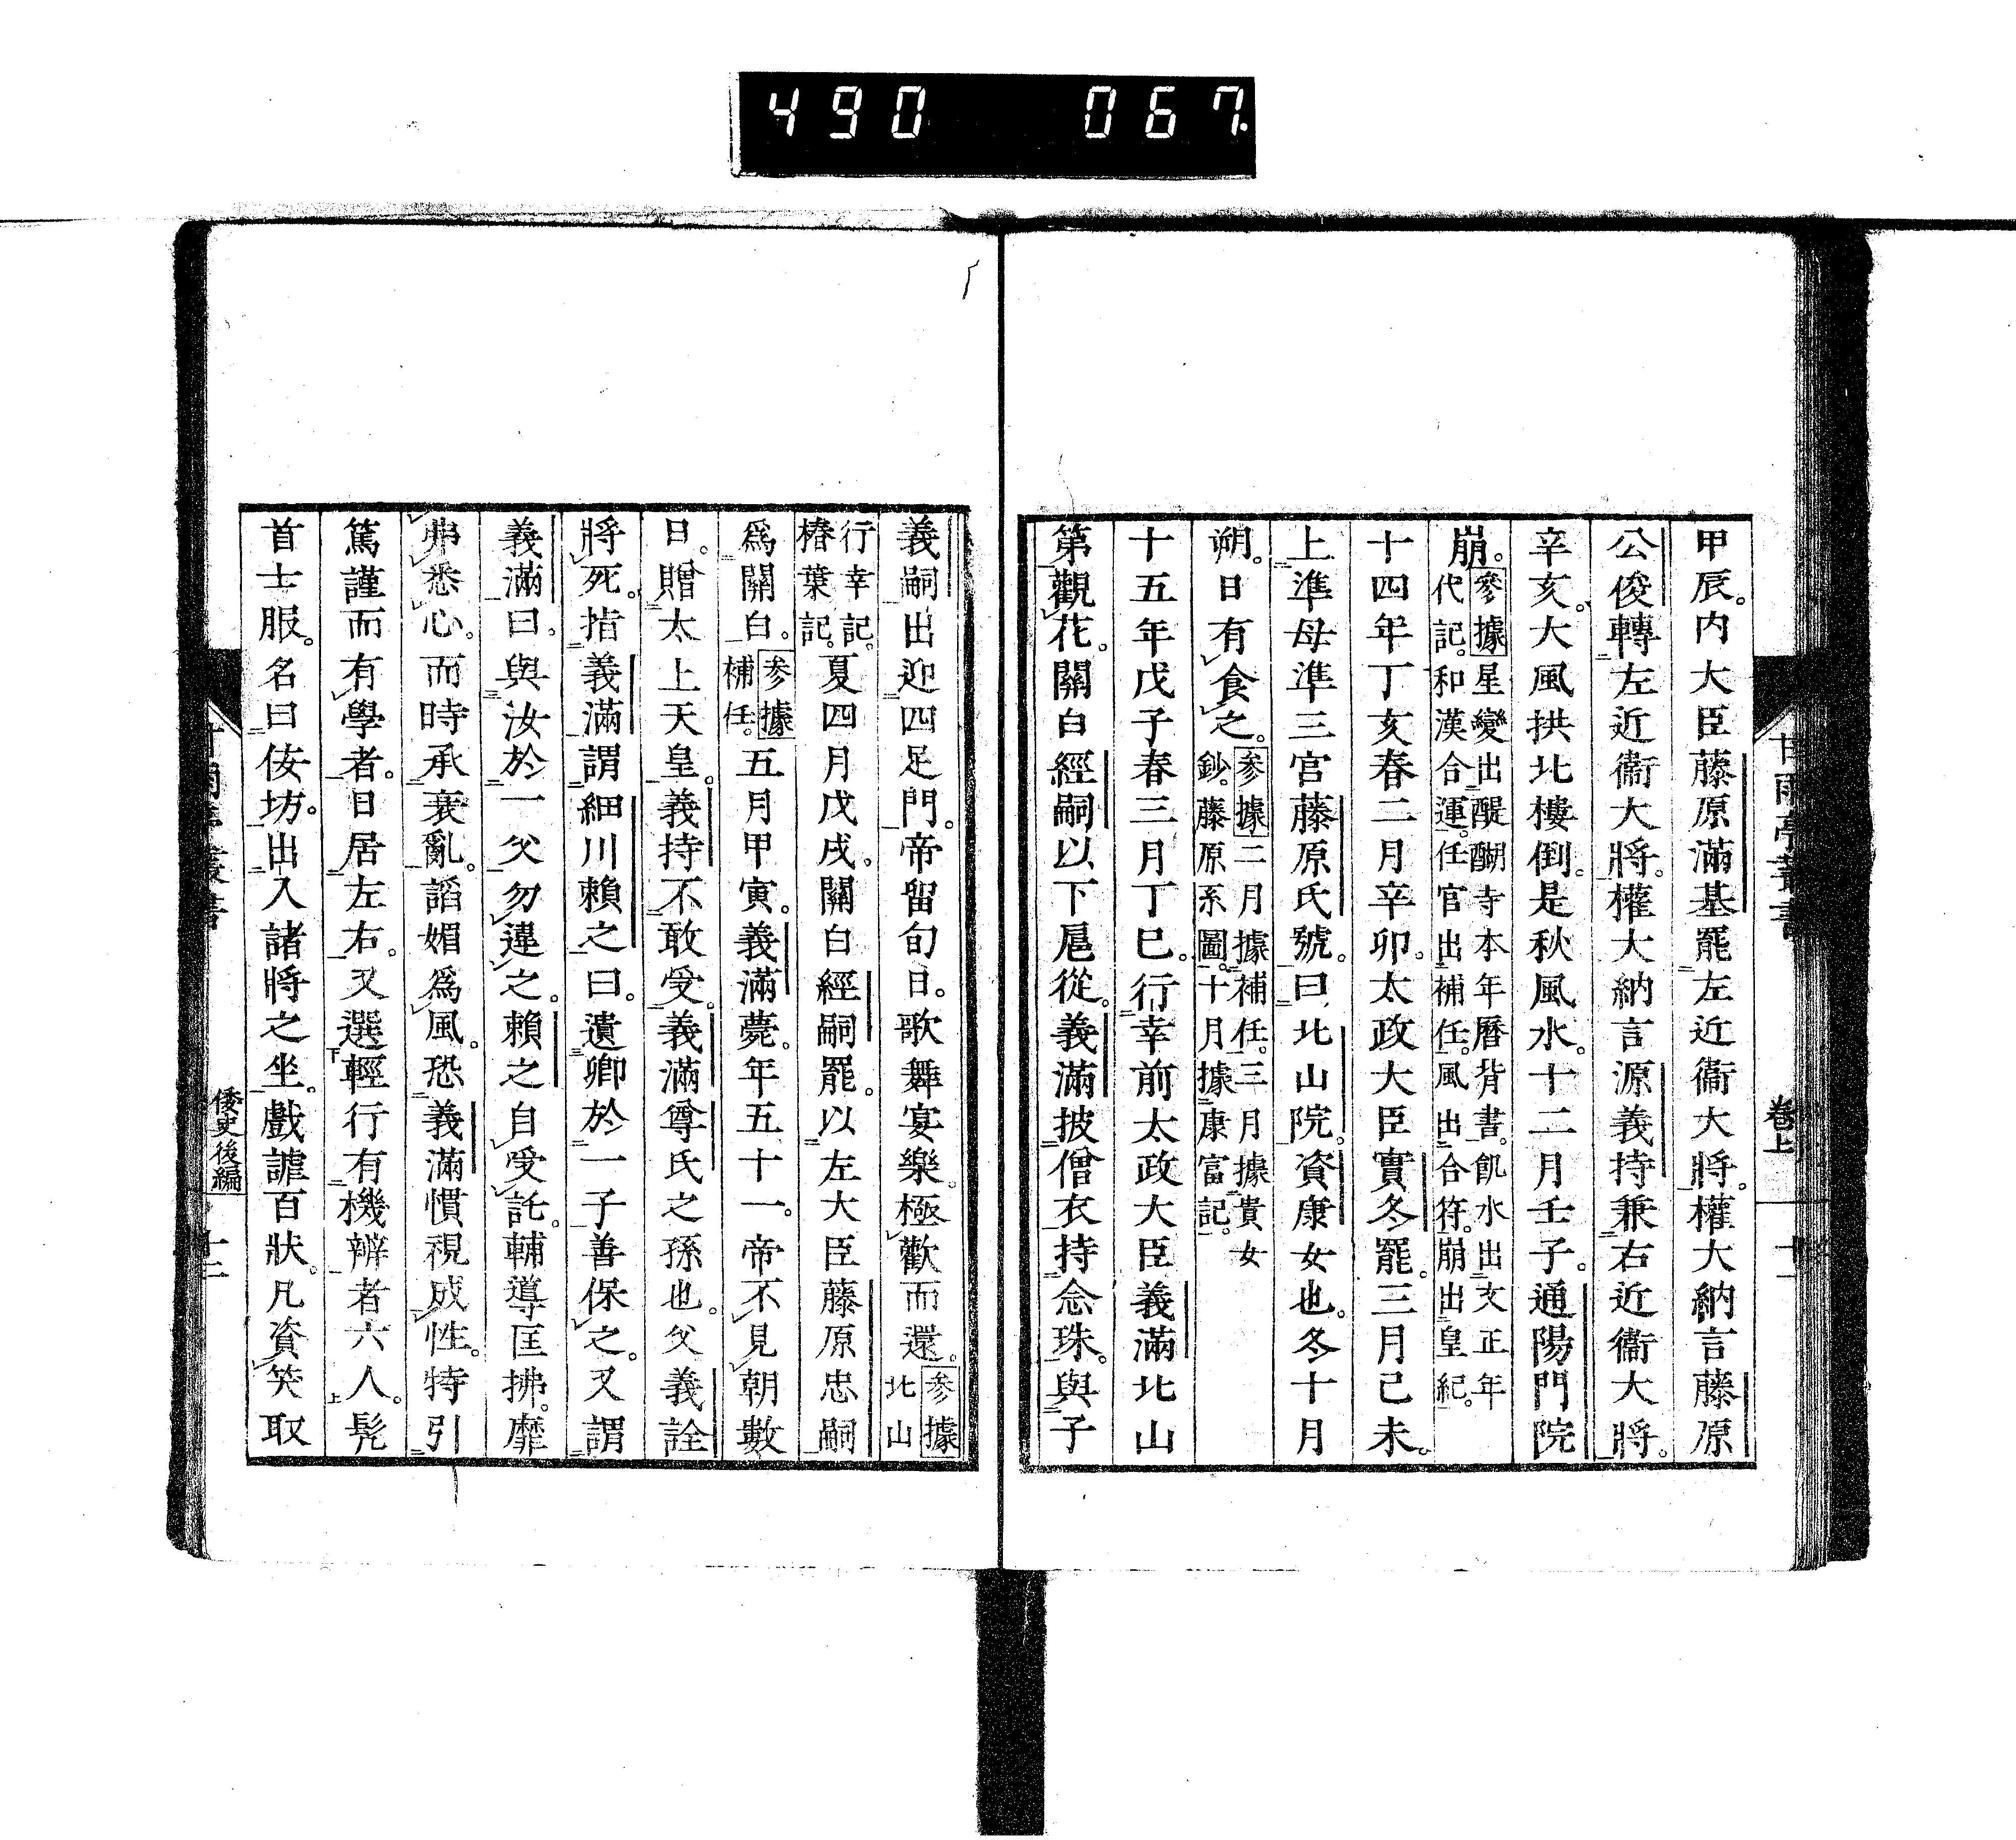 490 067
甘雨亭叢書 卷上 十一
甲辰。内大臣藤原滿基罷左近衞大將。權大納言藤原
公俊轉左近衞大將。權大納言源義持兼右近衞大將。
辛亥。大風拱北樓倒。是秋風水。十二月壬子。通陽門院
崩。參據星變出醍醐寺本年曆背書。飢水出文正年
代記。和漢合運。任官出補任。風出合符。崩出皇紀。
十四年丁亥春二月辛卯。太政大臣實冬罷。三月己未。
上準母準三宮藤原氏號。曰北山院。資康女也。冬十月
朔。日有食之。參據二月據補任。三月據貴女
鈔。藤原系圖。十月據康富記。
十五年戊子春三月丁巳。行幸前太政大臣義滿北山
第觀花。關白經嗣以下扈從。義滿披僧衣持念珠。與子
義嗣出迎四足門。帝留旬日。歌舞宴樂。極歡而還。參據北山
行幸記。
椿葉記。夏四月戊戌。關白經嗣罷。以左大臣藤原忠嗣
爲關白。參據補任。五月甲寅。義滿薨。年五十一。帝不見朝數
日。贈太上天皇。義持不敢受。義滿尊氏之孫也。父義詮
將死。指義滿謂細川賴之曰。遺卿於一子善保之。又謂
義滿曰。與汝於一父勿違之。賴之自受託。輔導匡拂。靡
弗悉心。而時承衰亂。諂媚爲風。恐義滿慣視成性。特引
篤謹而有學者。日居左右。又選輕行有機辨者六人。髠
首士服。名曰佞坊。出入諸將之坐。戲謔百狀。凡資笑取
倭史後編 十二